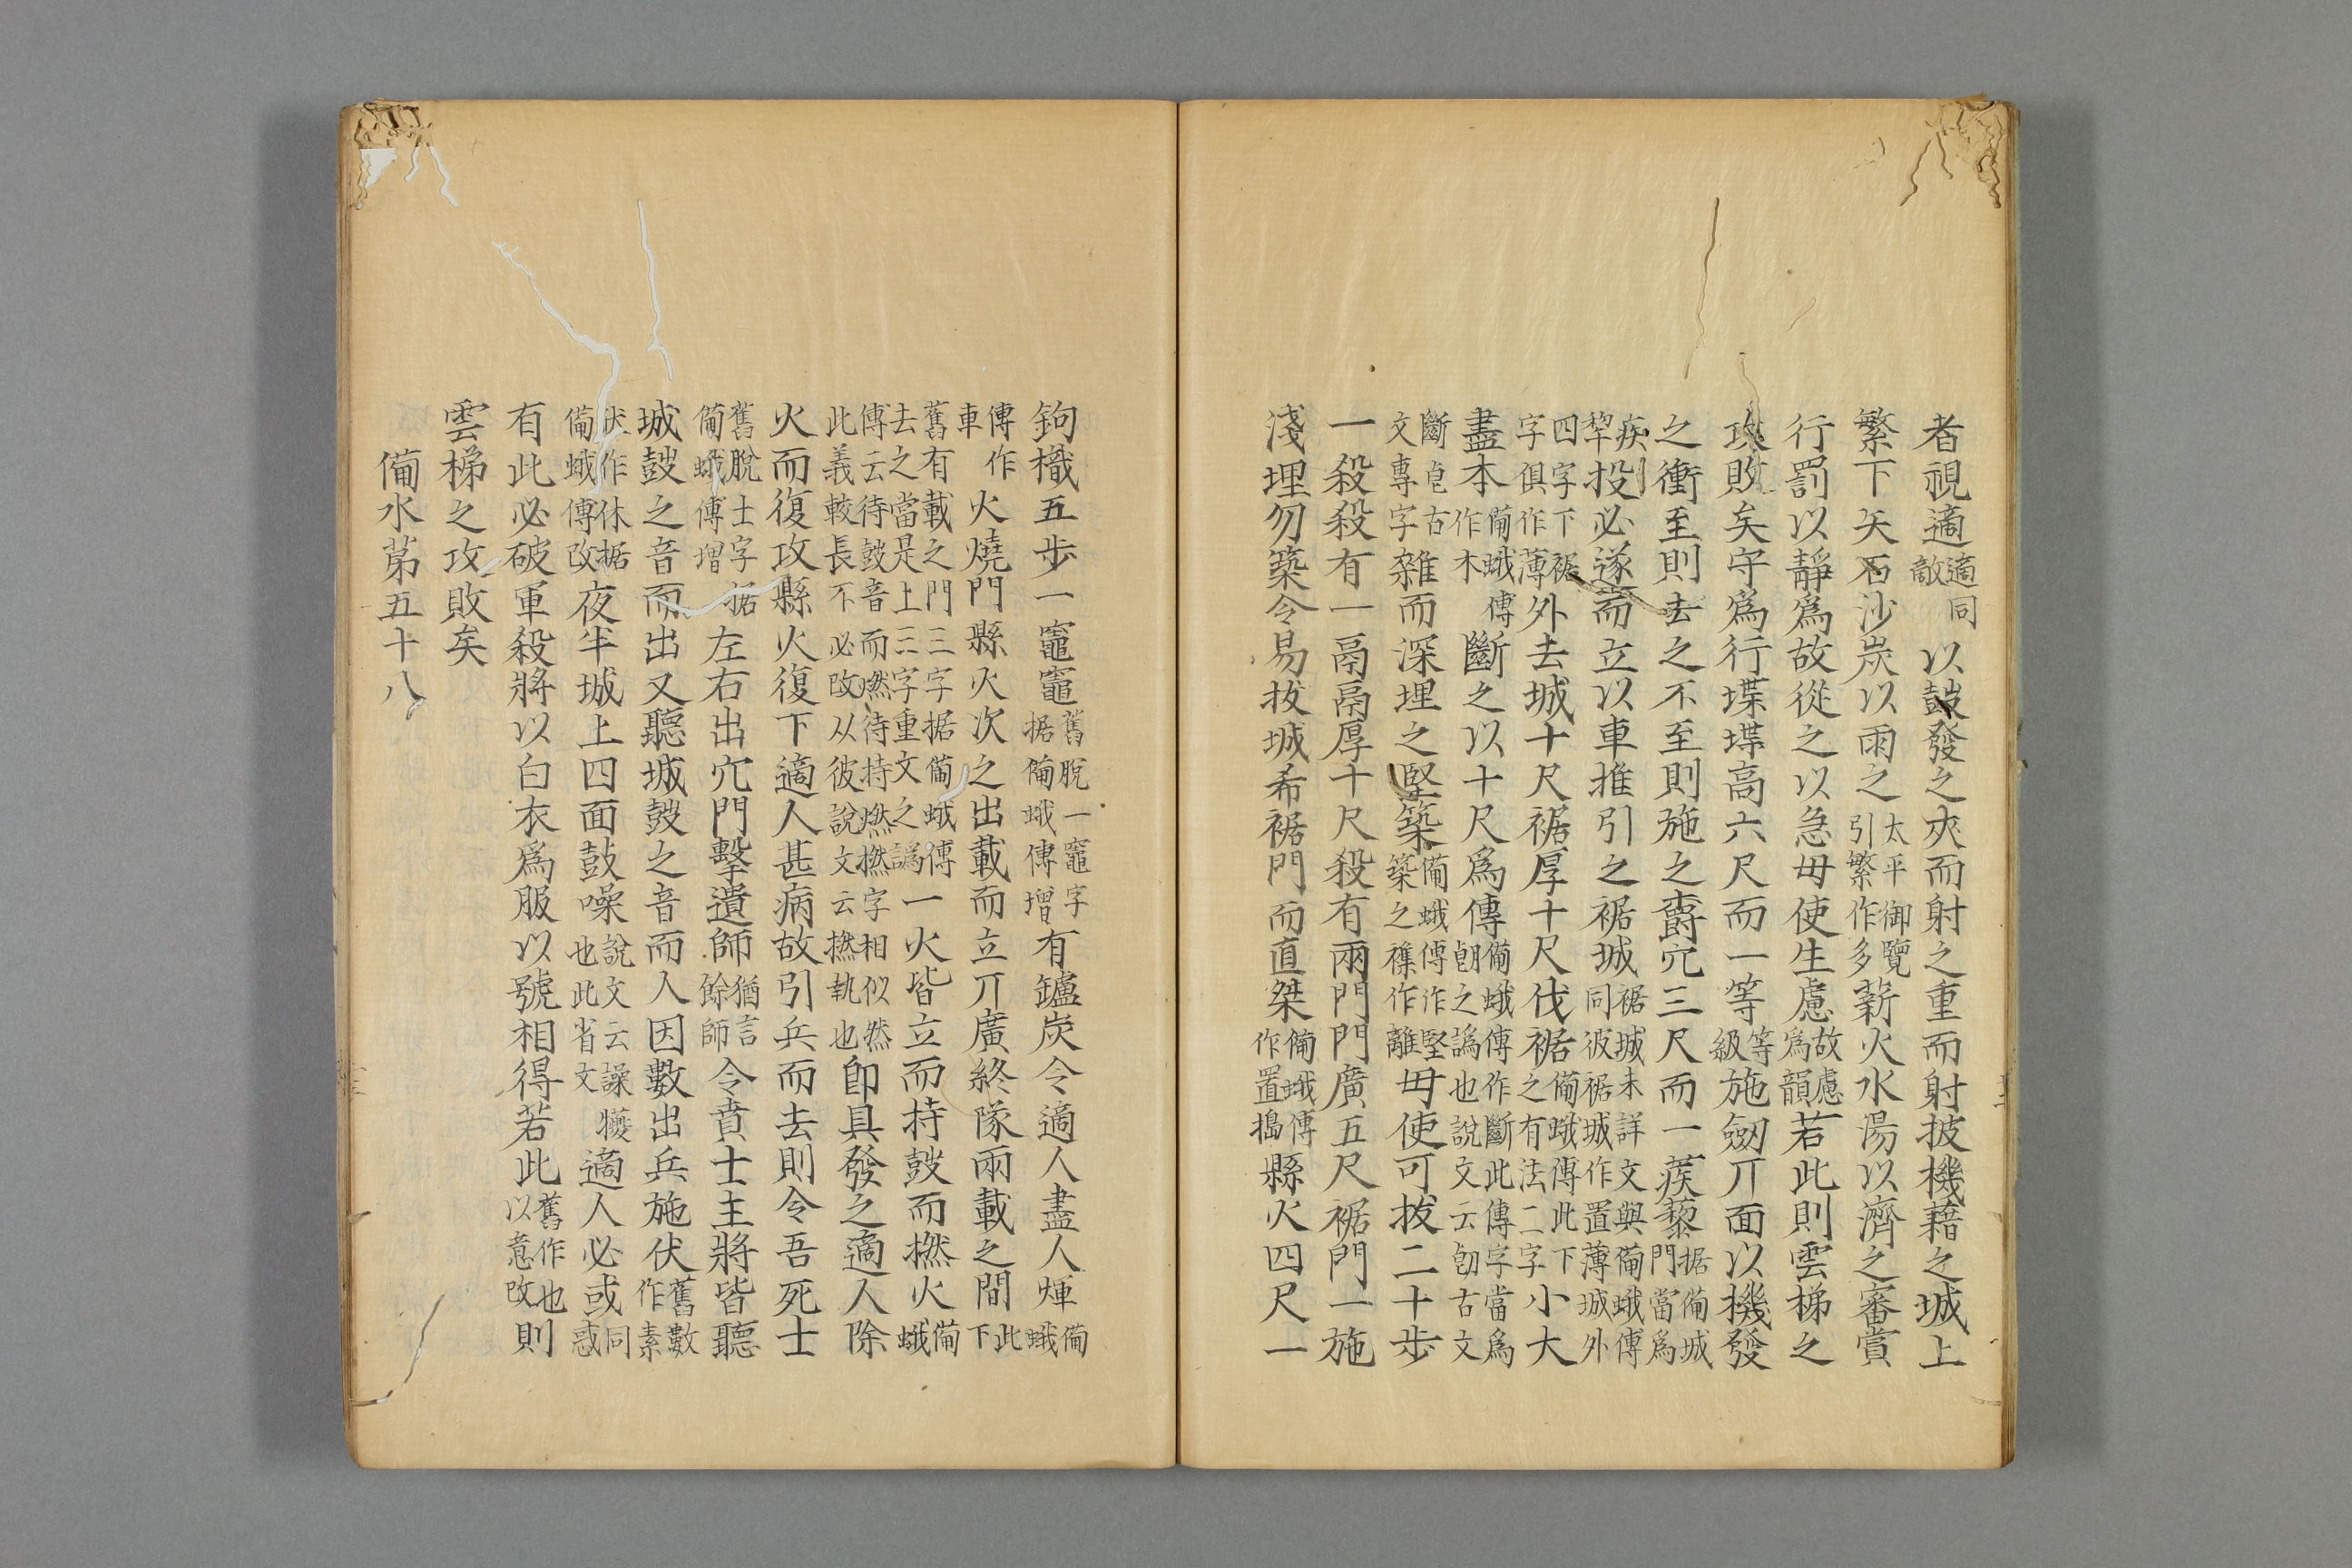 者視適適同敵以鼓發之夾而射之重而射披機藉之城上
繁下矢石沙炭以雨之太平御覽引繁作多薪火水湯以濟之審賞
行罰以靜爲故從之以急毋使生慮故慮爲韻若此則雲梯之
攻敗矣守爲行堞堞高六尺而一等等級施劒丌面以機發
之衝至則去之不至則施之爵穴三尺而一蒺藜据備城門當爲
疾犂投必遂而立以車推引之裾城裾城未詳文與備蛾傅同彼裾城作置薄城外
四字下裾字俱作薄外去城十尺裾厚十尺伐裾備蛾傅此下之有法二字小大
盡本備蛾傅作木斷之以十尺爲傳備蛾傅作斷此傳字當爲㔞之譌也說文云㔞古文
斷㔞古文專字雜而深埋之堅築備蛾傅作堅築之襍作離毋使可拔二十步
一殺殺有一鬲鬲厚十尺殺有兩門門廣五尺裾門一施
淺埋勿築令易拔城希裾門而直桀備蛾傅作置搗縣火四尺一
鉤樴五步一竈竈舊脫一竈字据備蛾傅增有鑪炭令適人盡人煇備蛾
傅作車火燒門縣火次之出載而立丌廣終隊兩載之間此下
舊有載之門三字据備蛾傅去之當是上三字重文之譌一火皆立而持鼓而撚火備蛾
傅云待鼓音而燃待持燃撚字相似然此義較長不必改从彼說文云撚執也卽具發之適人除
火而復攻縣火復下適人甚病故引兵而去則令吾死士
舊脫士字据備蛾傅增左右出穴門擊遺師猶言餘師令賁士主將皆聽
城鼓之音而出又聽城鼓之音而入因數出兵施伏舊數作素
伏作休据備蛾傅改夜半城上四面鼓噪說文云譟㹛也此省文適人必或同惑
有此必破軍殺將以白衣爲服以號相得若此舊作也以意改則
雲梯之攻敗矣
備水苐五十八